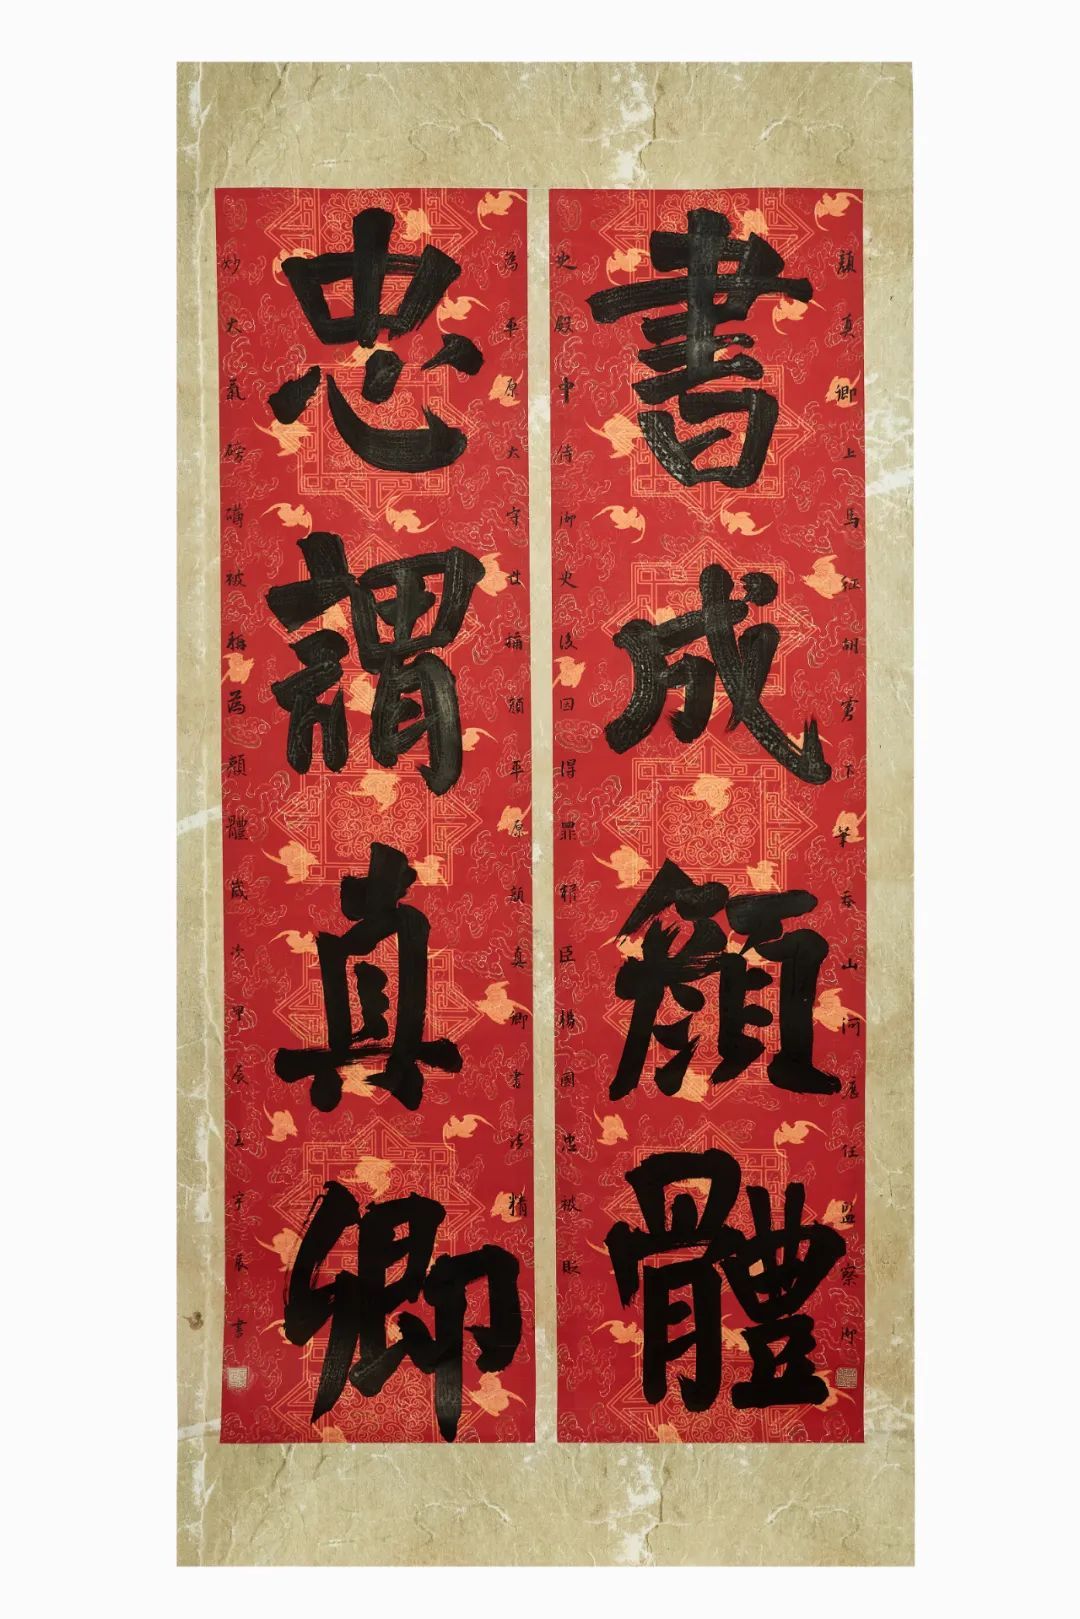 顏真卿上馬征胡虜下筆吞山河歷任監察御
書成顏體
史殿中侍御史後因得罪權臣楊國忠被貶
為平原太守世稱顏平原顏真卿書法精
忠謂真卿
妙大氣磅礴被稱為顏體歲次甲辰王宇辰書